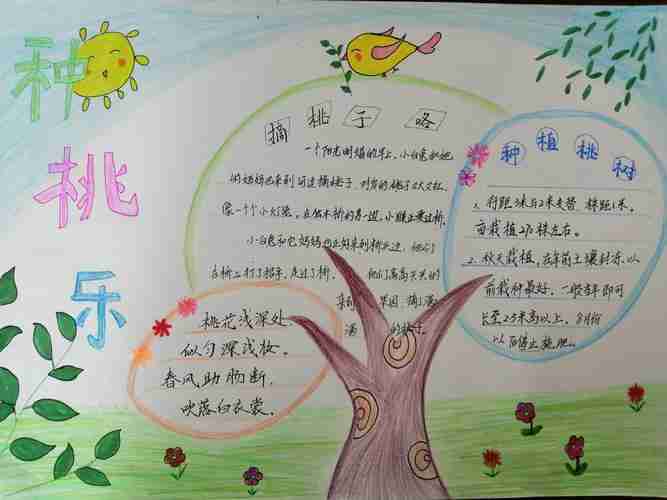 种
桃
乐
摘桃子咯
一个阳光明媚的早上,小白兔和她
们妈妈也来到河边摘桃子,对岸的桃子又大又红,
像一个个小灯笼。在低木桥的另一边,小猴正要过桥,
小白兔和它妈妈也正向来到桥头边,他们
在桥上打了招呼,走过了桥。他们高高兴兴的
来到 果园,摘了满
满 的桃子。
种植桃树
1、行距3米与2米支替,株距1米。
亩栽植270株左右。
2、秋天栽植,在年前土壤封冻以
前栽种最好,一般当年即可
长至2.5米高以上,8月份
以后停止施肥。
桃花浅深处,
似匀深浅妆。
春风助肠断,
吹落白衣裳。